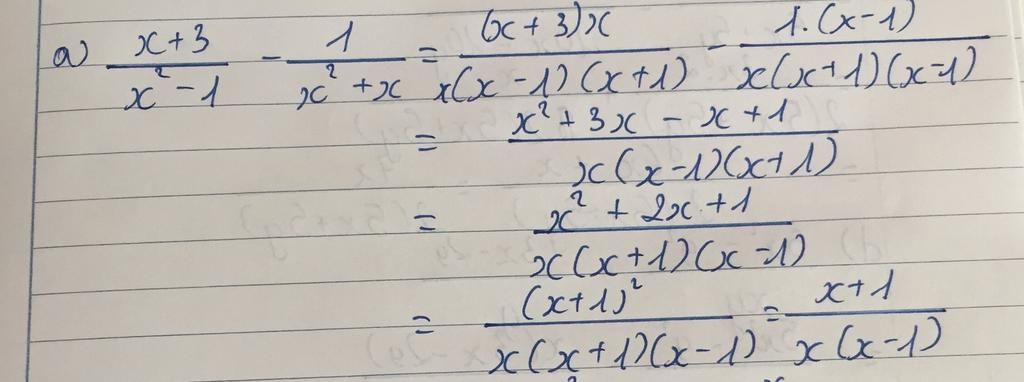 a) (x+3)/(x²-1) - 1/(x²+x) = (x+3)x/(x(x-1)(x+1)) - 1.(x-1)/(x(x+1)(x-1))
= (x²+3x-x+1)/(x(x-1)(x+1))
= (x²+2x+1)/(x(x+1)(x-1))
= (x+1)²/(x(x+1)(x-1)) = (x+1)/(x(x-1))